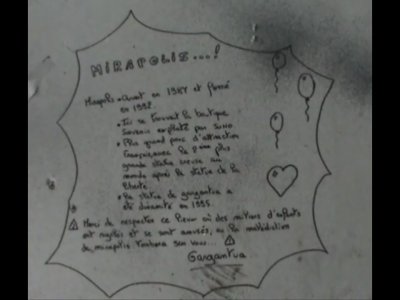 MIRAPOLIS...!
Mirapolis • Ouvert en 1987 et fermé
en 1992.
• Ici se trouvait la boutique
souvenir exploité par
• Plus grand parc d'attraction
Français, avec la 2ème plus
grande statue creuse au
monde après la statue de la
liberté
• La statue de gargantua a
été dynamité en 1995.
Merci de respecter ce lieux où des milliers d'enfants
ont rigolés et se sont amusés, ou la malédiction
de mirapolis tombera sur vous...
Gargantua